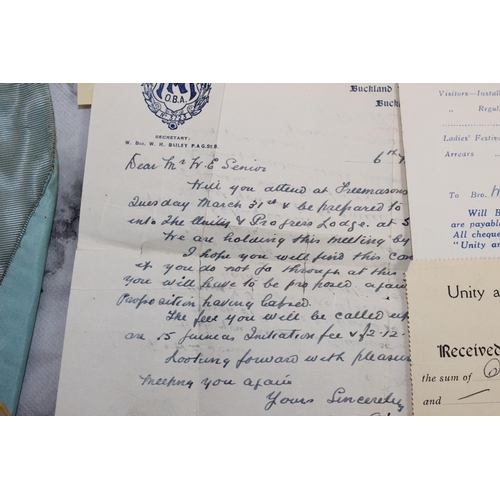 O.B.A.
SECRETARY:
W. Bro. W. H. BAILEY P.A.G.St.B.
Buckland
Buc
6th
Dear Mr W. E. Senior
Will you attend at Freemasons
Tuesday March 31st & be prepared to
into The Unity & Progress Lodge. at 5
We are holding this meeting by
I hope you will find this con
if you do not go through at this
you will have to be proposed again
Proposition having lapsed.
The fee you will be called u
are 15 guineas Initiation fee & £2-12-
Looking forward with pleasu
meeting you again
Yours Sincerely
Visitors—Install
" Regula
Ladies' Festiv
Arrears
To Bro.
Will B
are payable
All cheque
"Unity an
Unity a
Received
the sum of
and